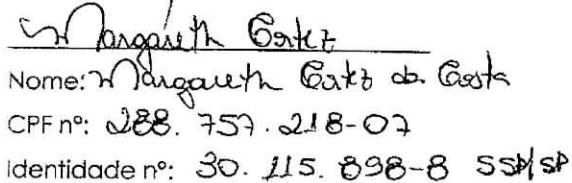 Margareth Cortez
Nome: Margareth Cortez da Costa
CPF nº: 288. 757. 218-07
Identidade nº: 30. 115. 898-8 SSP/SP